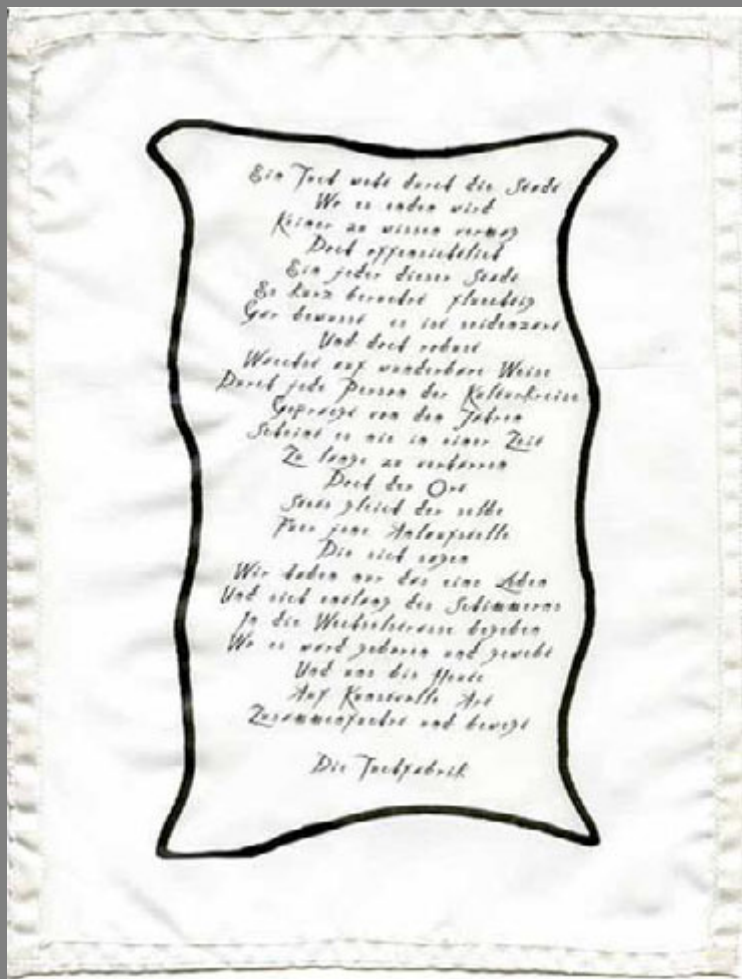 Ein Tuch weht durch die Stadt
Wo es enden wird
Keiner zu wissen vermag
Doch offensichtlich
Ein jeder dieser Stadt
Es kurz beruehrt fluechtig
Gar bewusst es ist seidenzart
Und doch robust
Waechst auf wunderbare Weise
Durch jede Person der Kulturkreise
Gepraegt von den Jahren
Scheint es nie in einer Zeit
Zu lange zu verharren
Doch der Ort
Stets gleich der selbe
Fuer jene Anlaufstelle
Die sich sagen
Wir haben nur das eine Leben
Und sich entlang des Schimmerns
In die Wechselstrasse begeben
Wo es ward geboren und gewebt
Und uns bis Heute
Auf Kunstvolle Art
Zusammenfuehrt und bewegt
Die Tuchfabrik